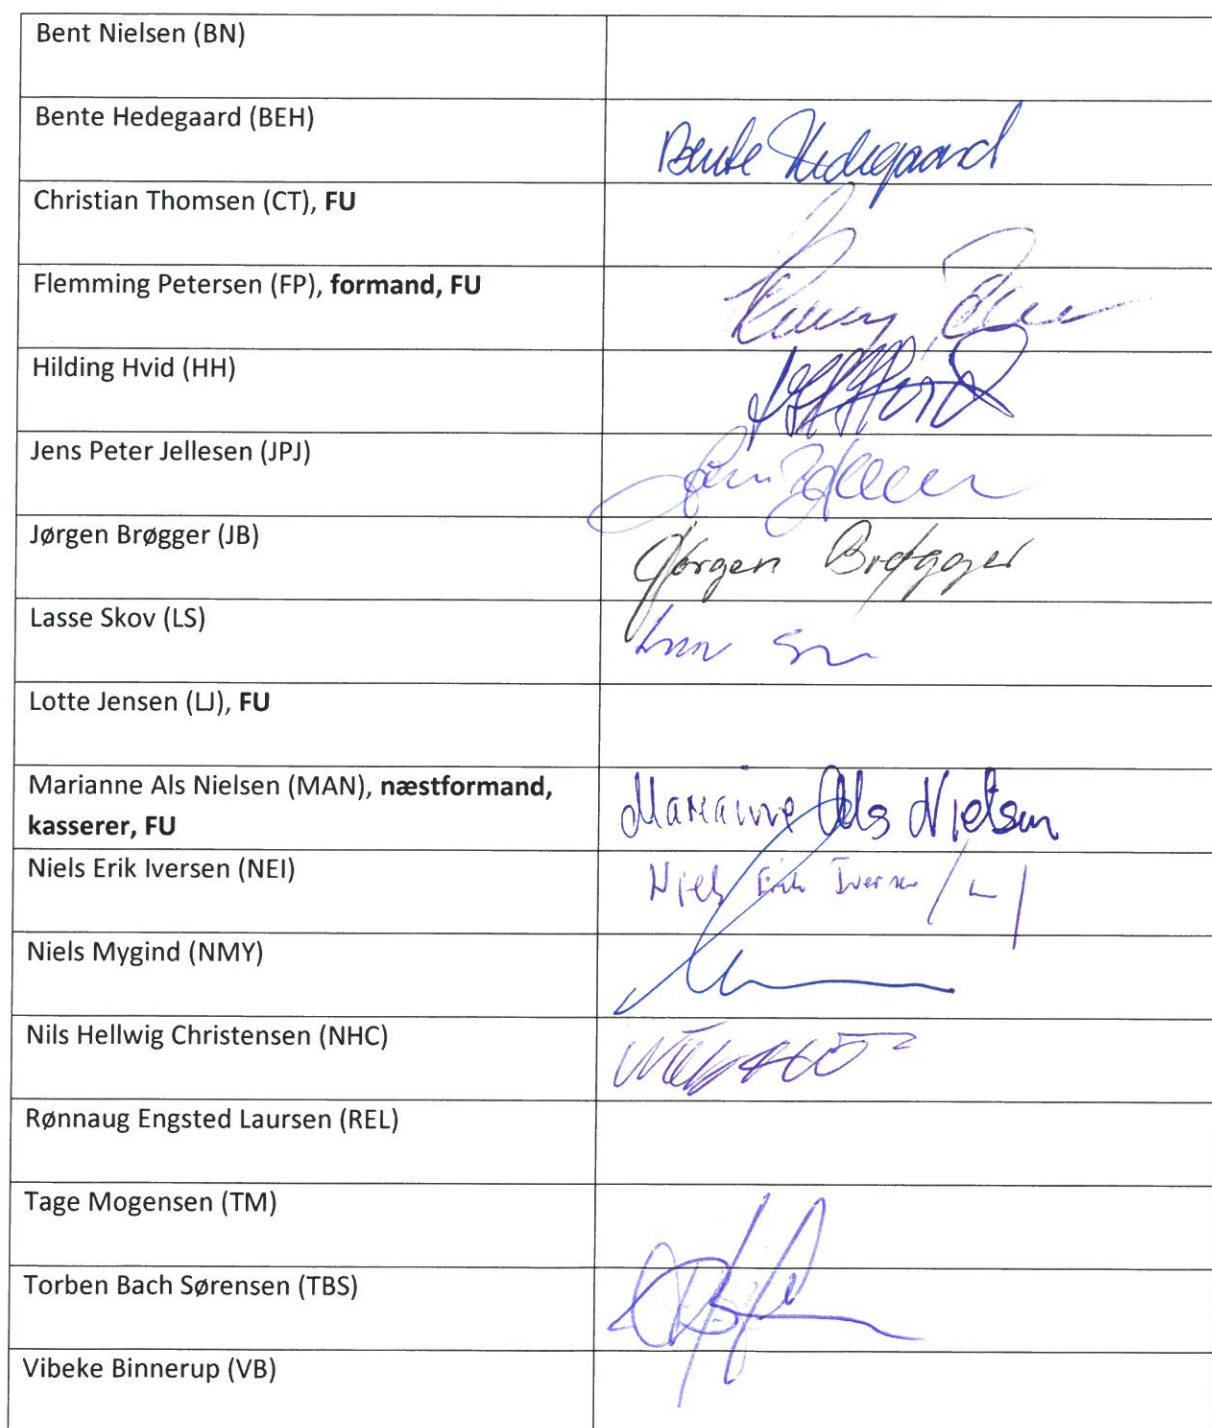 Bent Nielsen (BN)
Bente Hedegaard (BEH)
Bente Hedegaard
Christian Thomsen (CT), FU
Flemming Petersen (FP), formand, FU
Hilding Hvid (HH)
Jens Peter Jellesen (JPJ)
Jørgen Brøgger (JB)
Jørgen Brøgger
Lasse Skov (LS)
Lotte Jensen (LJ), FU
Marianne Als Nielsen (MAN), næstformand,
kasserer, FU
Marianne Als Nielsen
Niels Erik Iversen (NEI)
Niels Erik Iversen
Niels Mygind (NMY)
Nils Hellwig Christensen (NHC)
Rønnaug Engsted Laursen (REL)
Tage Mogensen (TM)
Torben Bach Sørensen (TBS)
Vibeke Binnerup (VB)